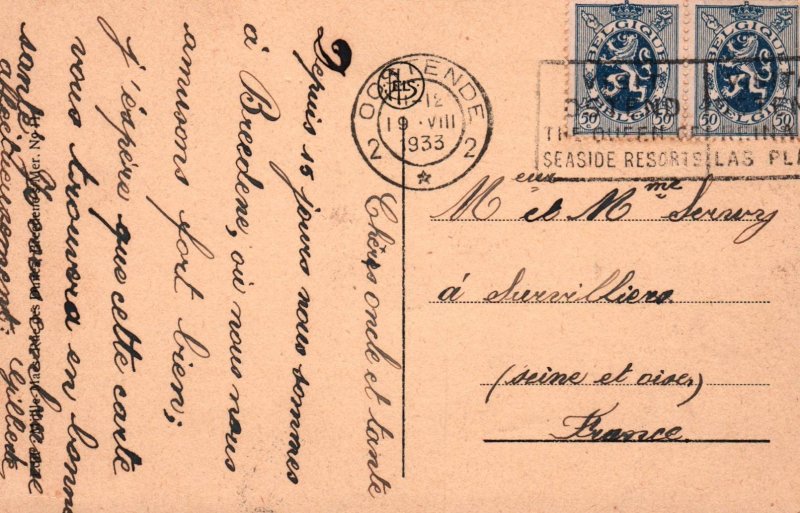 BELGIQUE BELGIQUE
BELGIË BELGIË
50 50 50 50
OOSTENDE
12
19 · VIII
1933
2 2
THE QUEEN OF
SEASIDE RESORTS LAS PLA
Mᵉᵘʳ et Mᵐᵉ Servry
à Survilliers
(seine et oise)
France
Chers oncle et tante
Depuis 15 jours nous sommes
à Breedene, où nous nous
amusons fort bien;
j'éspère que cette carte
vous trouvera en bonne
santé
affectueusement: Gilbert